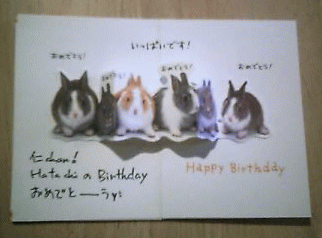 いっぱいです!
おめでとう!
おめでとう!
おめでとう!
Happy Birthday
仁chan!
Hatachi の Birthday
おめでと――ラッ!